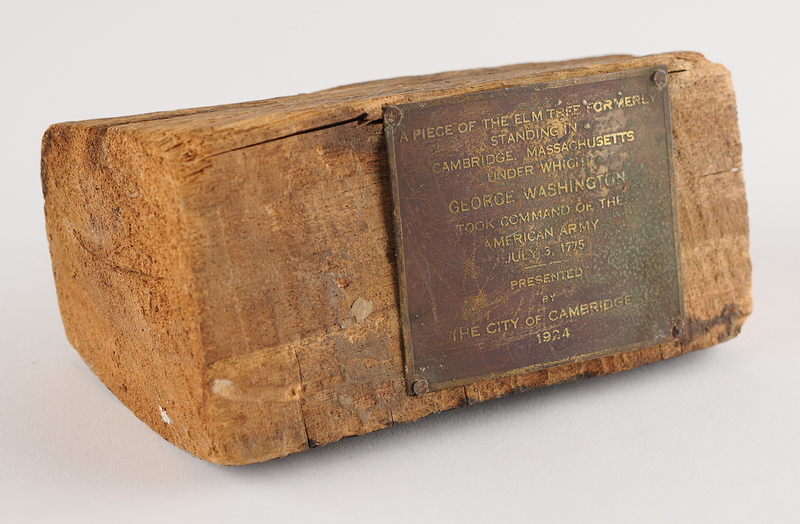 A PIECE OF THE ELM TREE FORMERLY
STANDING IN
CAMBRIDGE, MASSACHUSETTS
UNDER WHICH
GEORGE WASHINGTON
TOOK COMMAND OF THE
AMERICAN ARMY
JULY 3, 1775
PRESENTED
BY
THE CITY OF CAMBRIDGE
1924